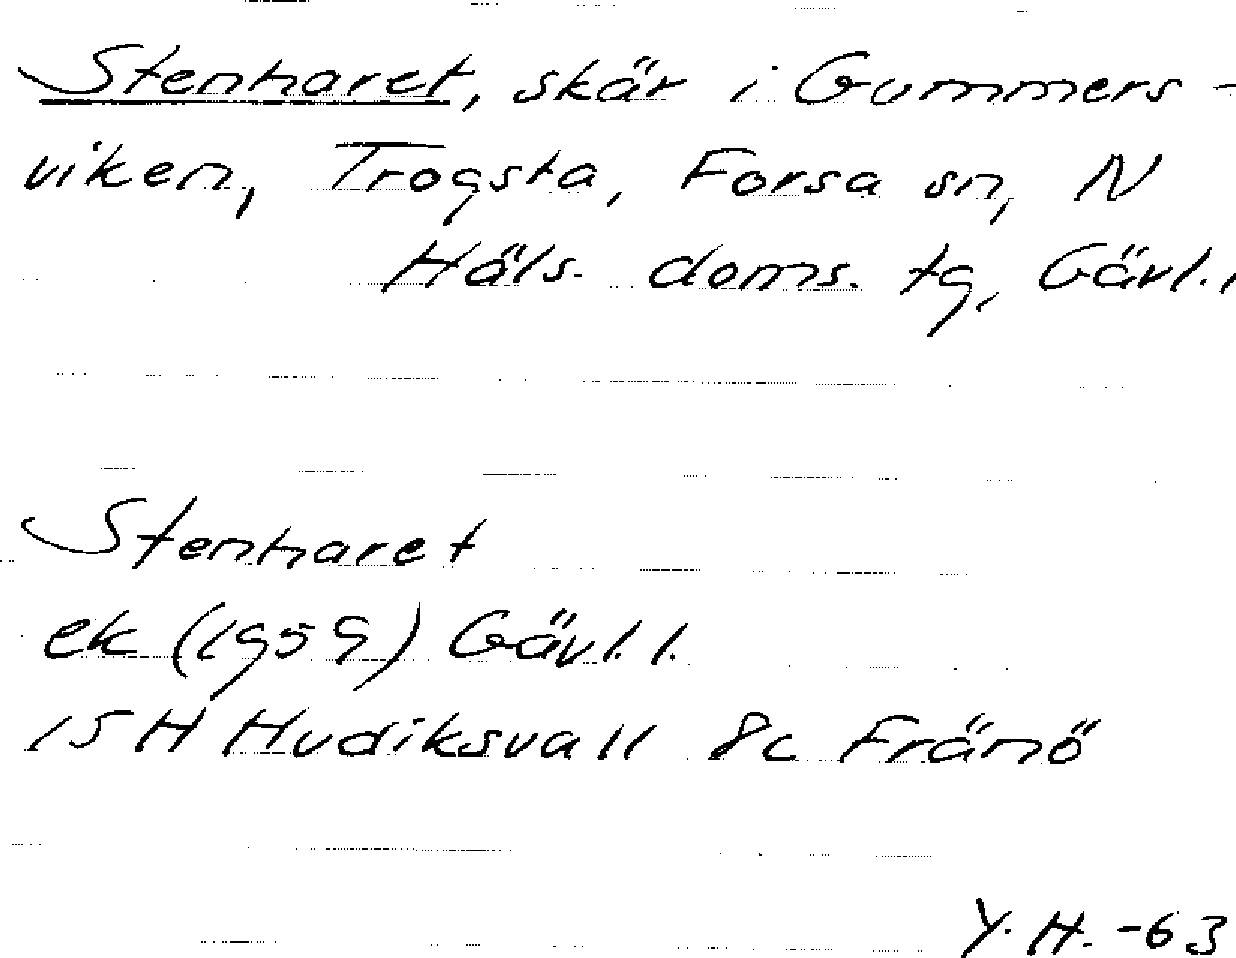 Stenharet, skär i Gummers-
viken, Trogsta, Forsa sn, N
Häls. doms. tg, Gävl.l
Stenharet
ek (1959) Gävl.l.
15H Hudiksvall 8c Fränö
Y.H. -63